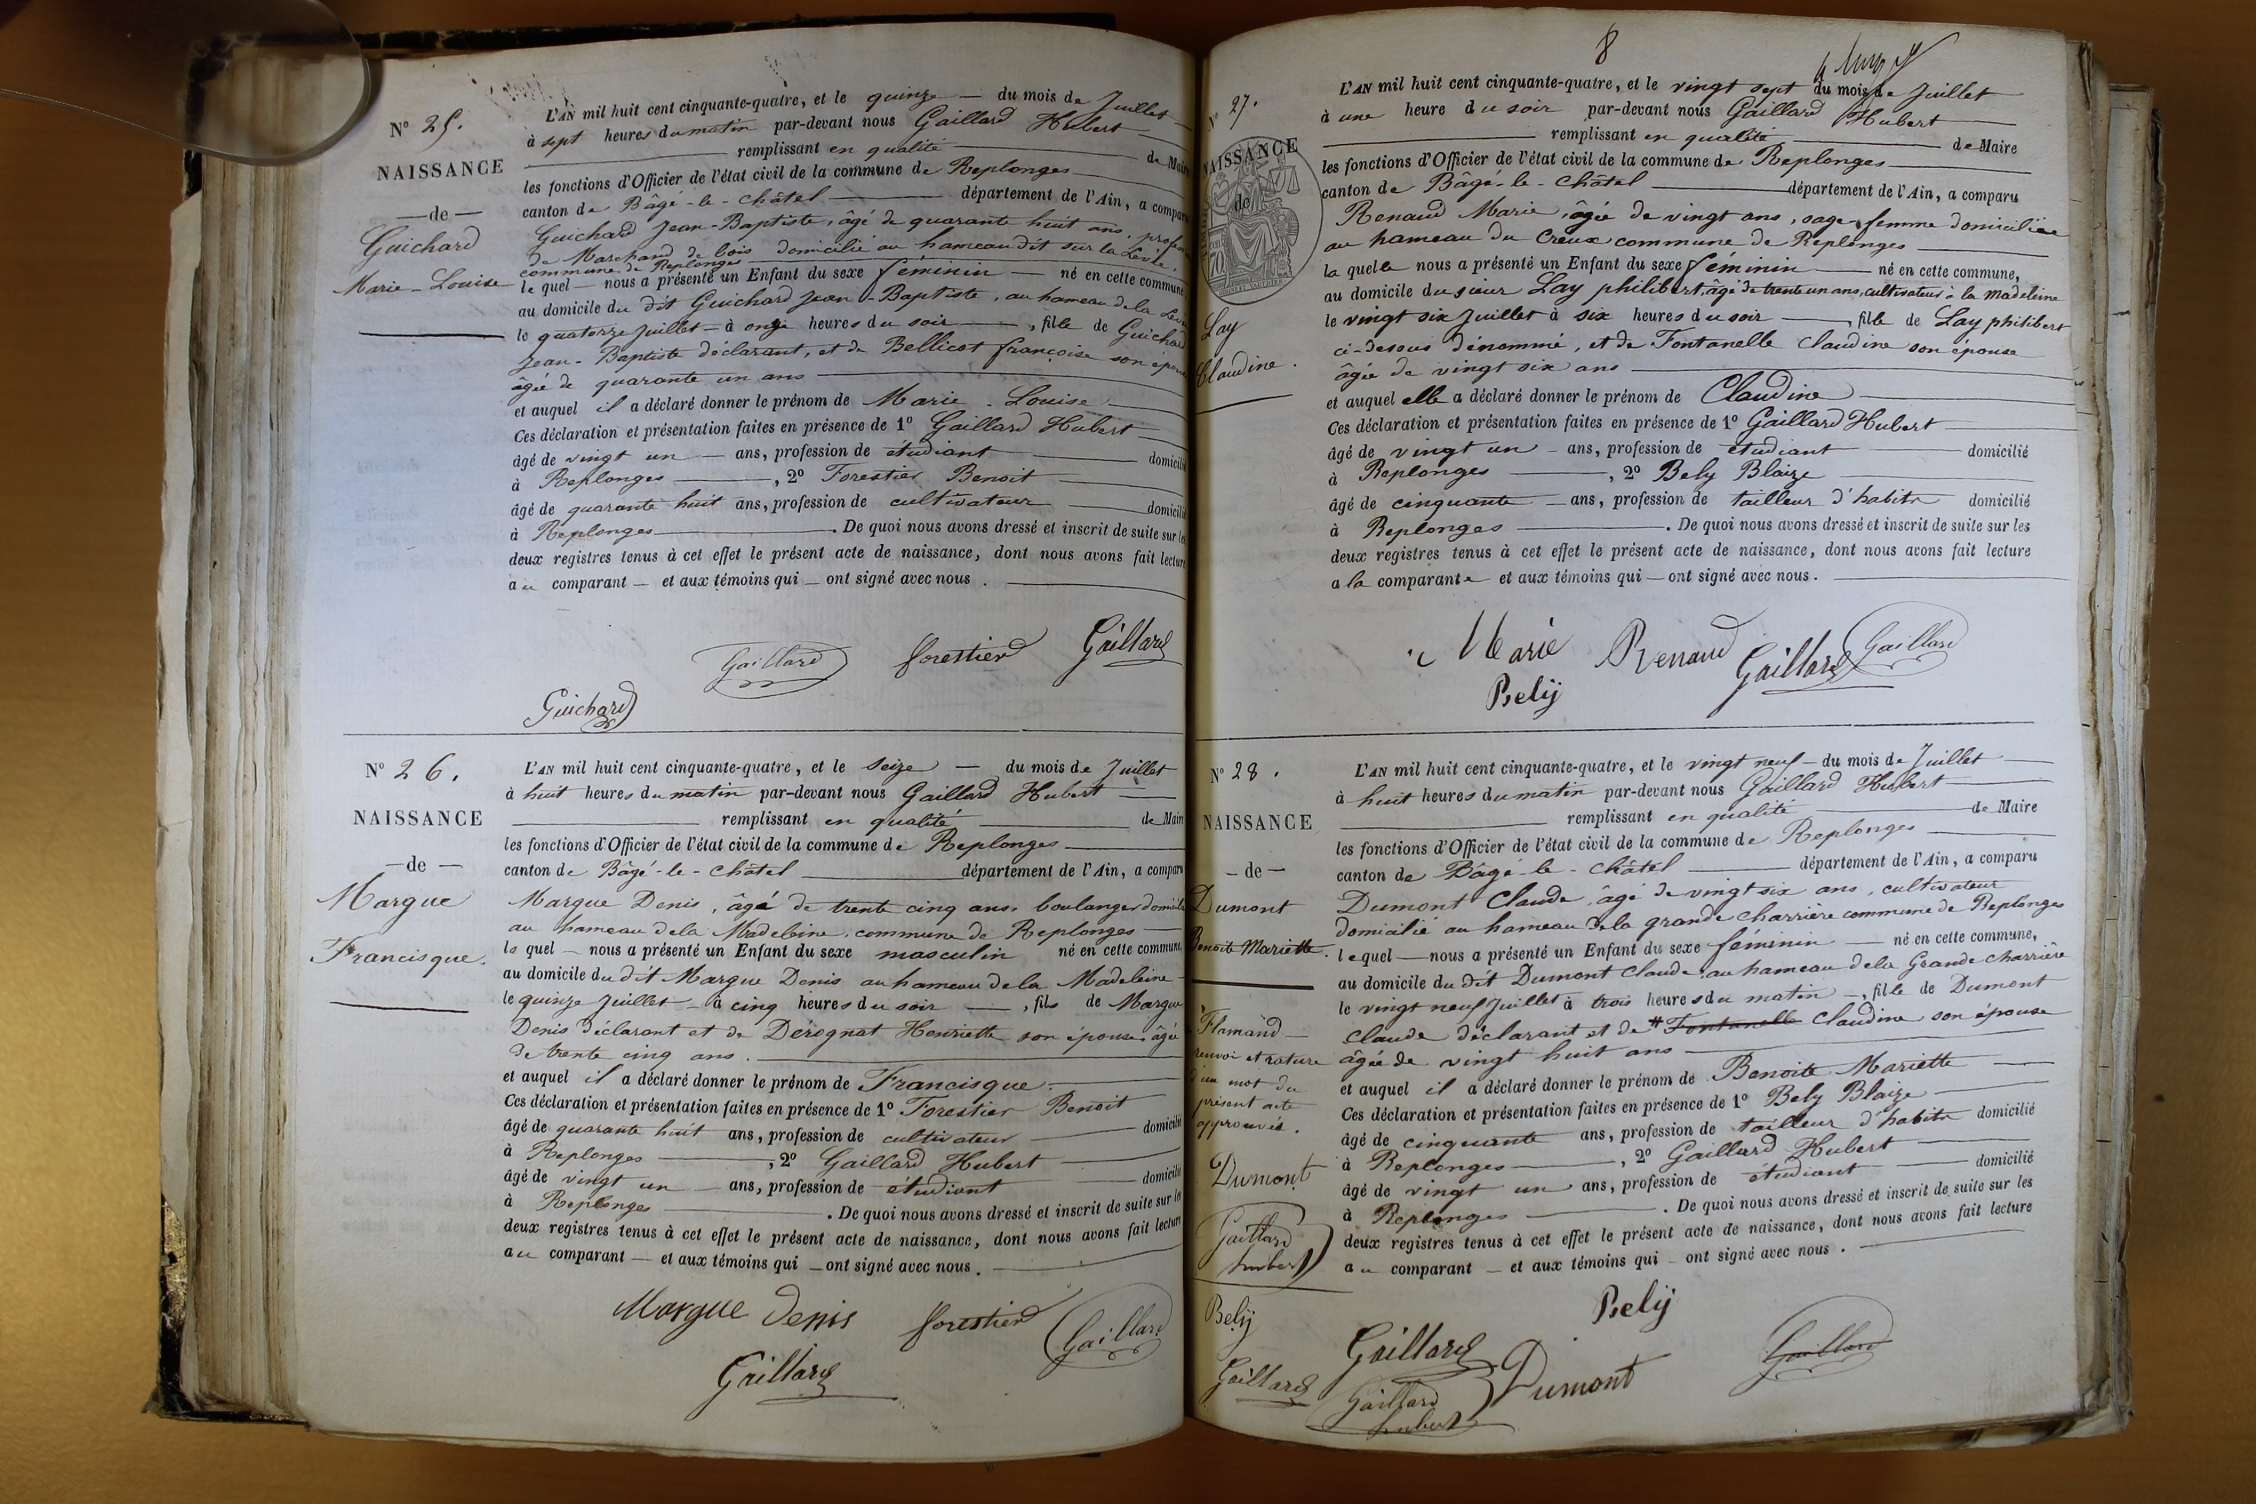 N° 25.
NAISSANCE
— de —
Guichard
Marie - Louise
L'AN mil huit cent cinquante-quatre, et le quinze — du mois de Juillet —
à sept heures du matin par-devant nous Gaillard Hubert —
remplissant en qualité de Maire
les fonctions d'Officier de l'état civil de la commune de Replonges
canton de Bâgé-le-Châtel département de l'Ain, a comparu
Guichard Jean-Baptiste, âgé de quarante huit ans, profession
de Marchand de bois domicilié au hameau dit sur la Levée,
commune de Replonges
le quel — nous a présenté un Enfant du sexe féminin — né en cette commune
au domicile du dit Guichard Jean-Baptiste, au hameau de la Levée
le quatorze Juillet — à onze heures du soir —, fille de Guichard
Jean-Baptiste déclarant, et de Bellicot françoise son épouse
âgée de quarante un ans
et auquel il a déclaré donner le prénom de Marie - Louise
Ces déclaration et présentation faites en présence de 1° Gaillard Hubert
âgé de vingt un — ans, profession de étudiant domicilié
à Replonges, 2° Forestier Benoit
âgé de quarante huit ans, profession de cultivateur domicilié
à Replonges. De quoi nous avons dressé et inscrit de suite sur les
deux registres tenus à cet effet le présent acte de naissance, dont nous avons fait lecture
au comparant — et aux témoins qui — ont signé avec nous.
Gaillard forestier Gaillard
Guichard
N° 26.
NAISSANCE
— de —
Margue
Francisque.
L'AN mil huit cent cinquante-quatre, et le seize — du mois de Juillet
à huit heures du matin par-devant nous Gaillard Hubert —
remplissant en qualité de Maire
les fonctions d'Officier de l'état civil de la commune de Replonges
canton de Bâgé-le-Châtel département de l'Ain, a comparu
Margue Denis, âgé de trente cinq ans, boulanger domicilié
au hameau de la Madeleine, commune de Replonges
le quel — nous a présenté un Enfant du sexe masculin né en cette commune
au domicile du dit Margue Denis au hameau de la Madeleine
le quinze Juillet — à cinq heures du soir —, fils de Margue
Denis déclarant et de Derognat Henriette son épouse âgée
de trente cinq ans.
et auquel il a déclaré donner le prénom de Francisque
Ces déclaration et présentation faites en présence de 1° Forestier Benoit
âgé de quarante huit ans, profession de cultivateur domicilié
à Replonges, 2° Gaillard Hubert
âgé de vingt un — ans, profession de étudiant domicilié
à Replonges. De quoi nous avons dressé et inscrit de suite sur les
deux registres tenus à cet effet le présent acte de naissance, dont nous avons fait lecture
au comparant — et aux témoins qui — ont signé avec nous.
Margue Denis forestier Gaillard
Gaillard
8
N° 27.
NAISSANCE
de
Lay
Claudine.
L'AN mil huit cent cinquante-quatre, et le vingt sept du mois de Juillet
à une heure du soir par-devant nous Gaillard Hubert
remplissant en qualité de Maire
les fonctions d'Officier de l'état civil de la commune de Replonges
canton de Bâgé-le-Châtel département de l'Ain, a comparu
Renaud Marie, âgée de vingt ans, sage-femme domiciliée
au hameau du Creux commune de Replonges
la quelle nous a présenté un Enfant du sexe féminin — né en cette commune,
au domicile du sieur Lay philibert, âgé de trente un ans, cultivateur à la Madeleine
le vingt six Juillet à six heures du soir —, fille de Lay philibert
ci-dessus dénommé, et de Fontanelle Claudine son épouse
âgée de vingt six ans
et auquel elle a déclaré donner le prénom de Claudine
Ces déclaration et présentation faites en présence de 1° Gaillard Hubert
âgé de vingt un — ans, profession de étudiant domicilié
à Replonges, 2° Bely Blaize
âgé de cinquante — ans, profession de tailleur d'habits domicilié
à Replonges. De quoi nous avons dressé et inscrit de suite sur les
deux registres tenus à cet effet le présent acte de naissance, dont nous avons fait lecture
a la comparante et aux témoins qui — ont signé avec nous.
Marie Renaud Gaillard Gaillard
Belij
N° 28.
NAISSANCE
— de —
Dumont
Benoite Mariette.
Flamand —
renvoi et rature
d'un mot du
présent acte
approuvés.
Dumont
Gaillard
hubert
Belij
Gaillard
L'AN mil huit cent cinquante-quatre, et le vingt neuf — du mois de Juillet
à huit heures du matin par-devant nous Gaillard Hubert
remplissant en qualité de Maire
les fonctions d'Officier de l'état civil de la commune de Replonges
canton de Bâgé-le-Châtel département de l'Ain, a comparu
Dumont Claude, âgé de vingt six ans, cultivateur
domicilié au hameau de la grande charrière commune de Replonges
lequel — nous a présenté un Enfant du sexe féminin — né en cette commune,
au domicile du dit Dumont Claude, au hameau de la Grande charrière
le vingt neuf Juillet à trois heures du matin —, fille de Dumont
Claude déclarant et de # Fontanelle Claudine son épouse
âgée de vingt huit ans
et auquel il a déclaré donner le prénom de Benoite Mariette
Ces déclaration et présentation faites en présence de 1° Bely Blaize
âgé de cinquante ans, profession de tailleur d'habits domicilié
à Replonges, 2° Gaillard Hubert
âgé de vingt un ans, profession de étudiant domicilié
à Replonges. De quoi nous avons dressé et inscrit de suite sur les
deux registres tenus à cet effet le présent acte de naissance, dont nous avons fait lecture
au comparant — et aux témoins qui — ont signé avec nous.
Belij
Gaillard Dumont Gaillard
Gaillard
hubert